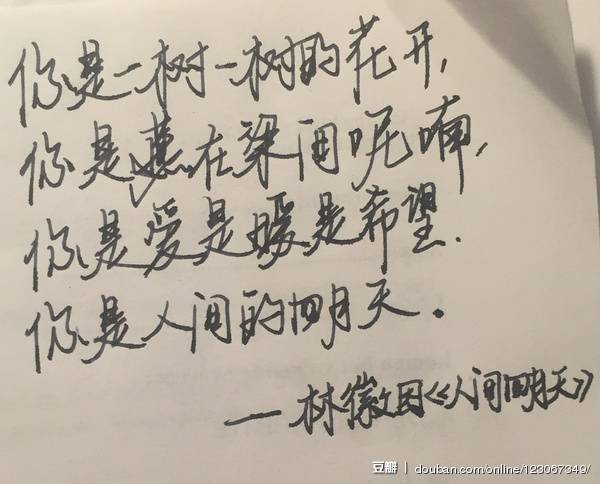 你是一树一树的花开,
你是燕在梁间呢喃,
你是爱是暖是希望.
你是人间的四月天.
—林徽因《人间四月天》
豆瓣 | douban.com/online/123067349/